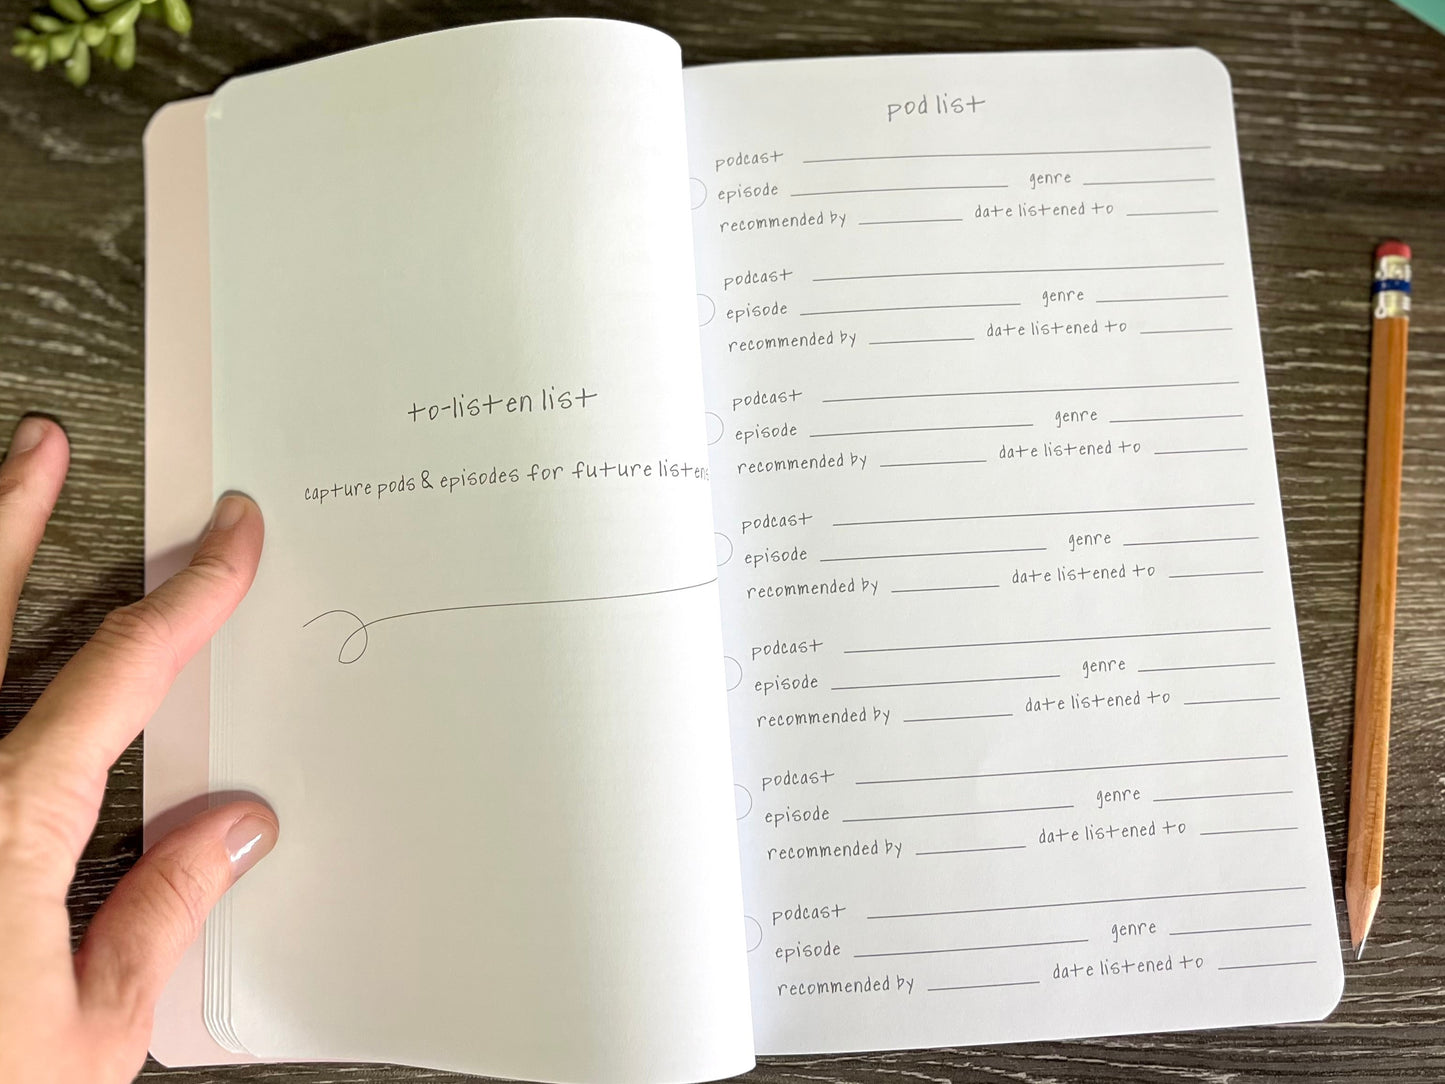 to-listen list
capture pods & episodes for future listens
pod list
podcast
episode genre
recommended by date listened to
podcast
episode genre
recommended by date listened to
podcast
episode genre
recommended by date listened to
podcast
episode genre
recommended by date listened to
podcast
episode genre
recommended by date listened to
podcast
episode genre
recommended by date listened to
podcast
episode genre
recommended by date listened to